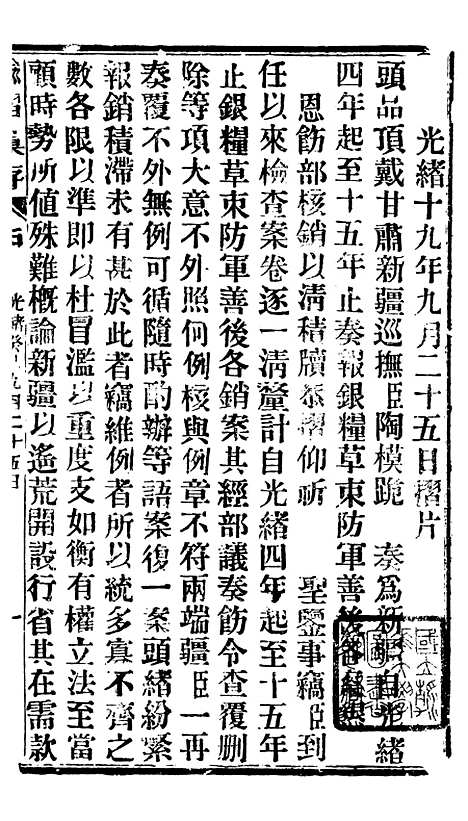 光緒十九年九月二十五日摺片
頭品頂戴甘肅新疆巡撫臣陶模跪　奏爲新疆自光緒
四年起至十五年止奏報銀糧草束防軍善後各
恩飭部核銷以清積牘恭摺仰祈　聖鑒事竊臣到
任以來檢查案卷逐一清釐計自光緒四年起至十五年
止銀糧草束防軍善後各銷案其經部議奏飭令查覆刪
除等項大意不外照何例核與例章不符兩端疆臣一再
奏覆不外無例可循隨時酌辦等語案復一案頭緒紛繁
報銷積滯未有甚於此者竊維例者所以統多寡不齊之
數各限以準即以杜冒濫以重度支如衡有權立法至當
顧時勢所値殊難槪論新疆以遙荒開設行省其在需款
諭摺彙存
光緒癸巳九月二十五日
一